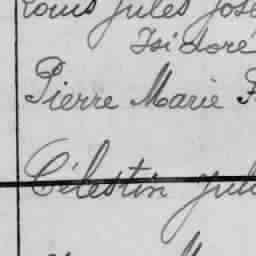 Louis Jules José
Isidore
Pierre Marie F
Célestin Jul